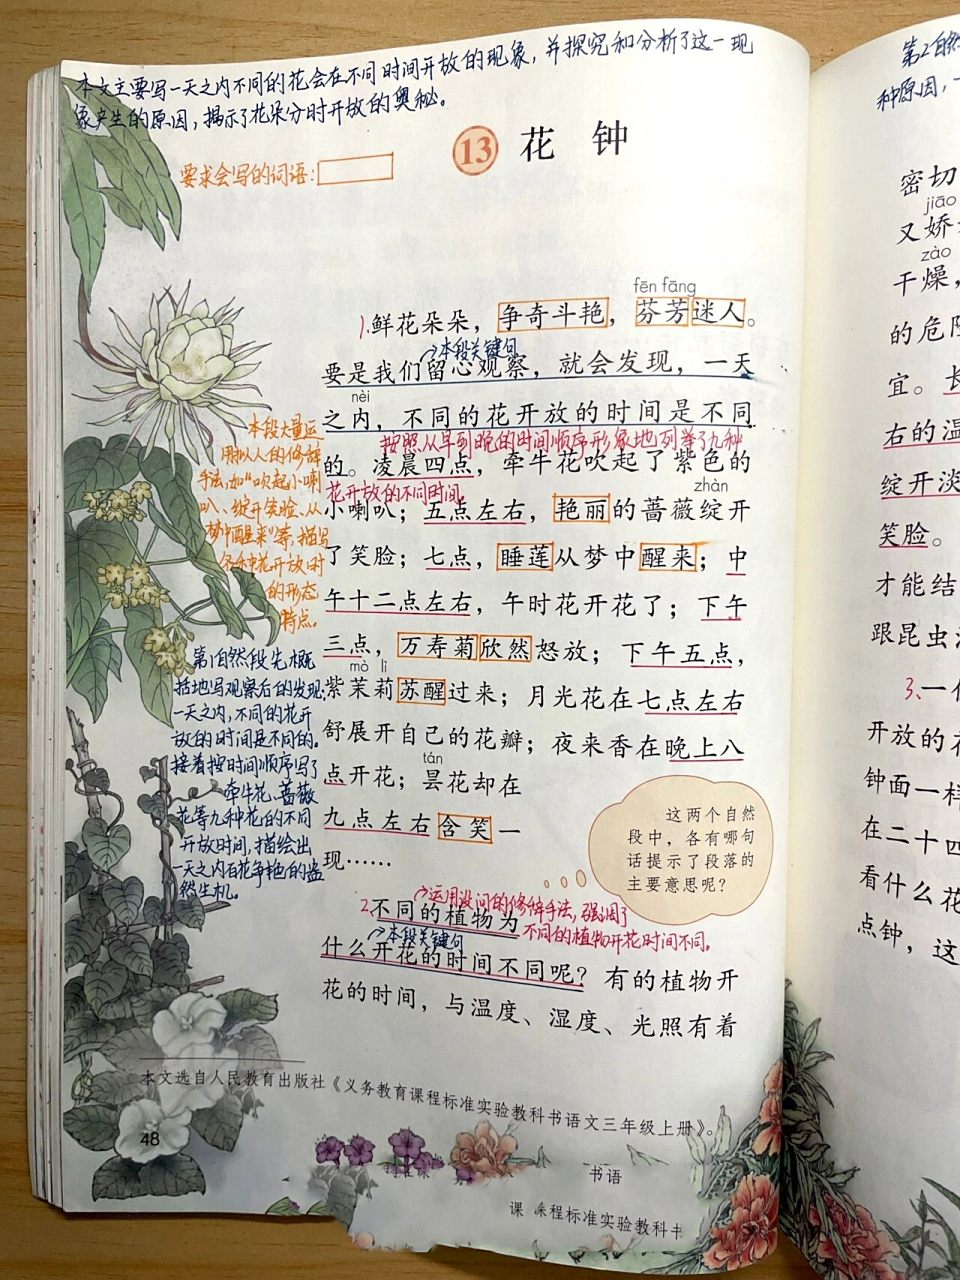 本文主要写一天之内不同的花会在不同时间开放的现象，并探究和分析了这一现
象产生的原因，揭示了花朵分时开放的奥秘。
13 花钟
要求会写的词语：
fēn fāng
1.鲜花朵朵，争奇斗艳，芬芳迷人。
→本段关键句
要是我们留心观察，就会发现，一天
nèi
之内，不同的花开放的时间是不同
按照从早到晚的时间顺序形象地列举了九种
的。凌晨四点，牵牛花吹起了紫色的
花开放的不同时间。
zhàn
小喇叭；五点左右，艳丽的蔷薇绽开
了笑脸；七点，睡莲从梦中醒来；中
午十二点左右，午时花开花了；下午
三点，万寿菊欣然怒放；下午五点，
mò lì
紫茉莉苏醒过来；月光花在七点左右
舒展开自己的花瓣；夜来香在晚上八
tán
点开花；昙花却在
九点左右含笑一
现……
本段大量运
用拟人的修辞
手法，如“吹起小喇
叭、绽开笑脸、从
梦中醒来”等，描写
各种花开放时
的形态
特点。
第1自然段先概
括地写观察后的发现：
一天之内，不同的花开
放的时间是不同的。
接着按时间顺序写了
牵牛花、蔷薇
花等九种花的不同
开放时间，描绘出
一天之内百花争艳的盎
然生机。
这两个自然
段中，各有哪句
话提示了段落的
主要意思呢？
→运用设问的修辞手法，强调了
不同的植物开花时间不同。
2.不同的植物为
→本段关键句
什么开花的时间不同呢？有的植物开
花的时间，与温度、湿度、光照有着
本文选自人民教育出版社《义务教育课程标准实验教科书语文三年级上册》。
48
书语
课
程标准实验教科书
第2自然
种原因，
密切
jiāo
又娇
zào
干燥，
的危险
宜。长
右的温
绽开淡
笑脸。
才能结
跟昆虫
3.一
开放的花
钟面一样
在二十四
看什么花
点钟，这